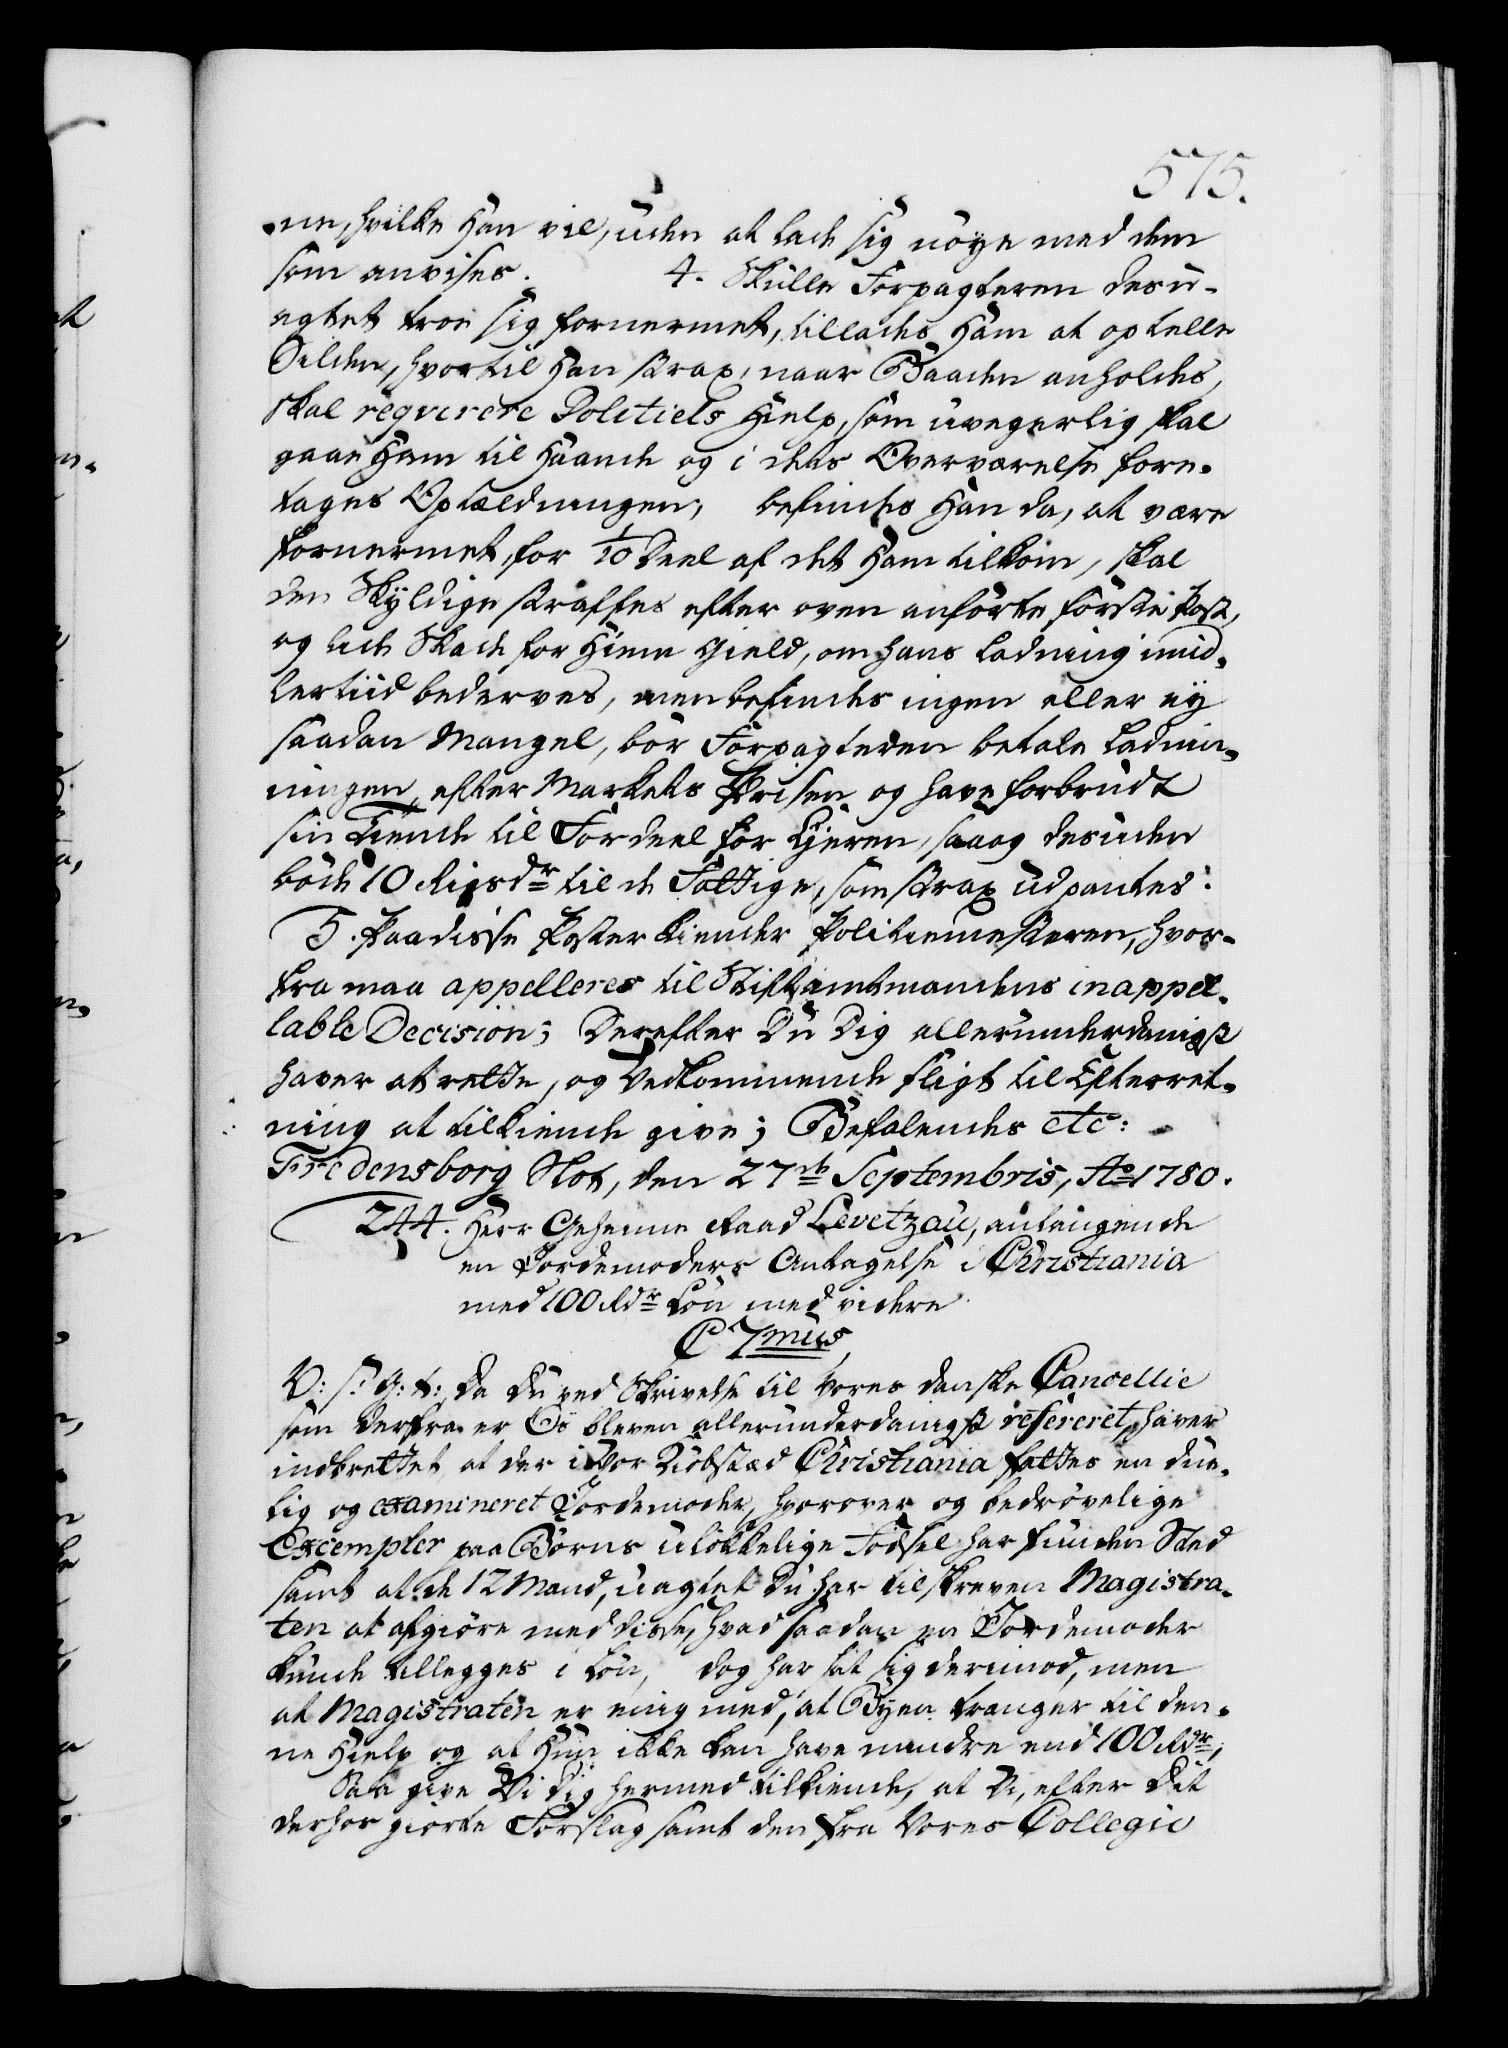 575.
ne, hvilke Han vil, uden at lade sig nøye med dem
som anvises. 4. Skulle Forpagteren desu-
agtet troe sig fornermet, tillades Ham at optelle
Silden, hvortil Han strax, naar Baaden anholdes,
skal reqvirere Politiets Hielp, som uvegerlig skal
gaae Ham til Haande og i dets Overværelse fore-
tages Optældningen, befindes Han da, at være
fornermet, for 1/10 Deel af det Ham tilkom, skal
den Skyldige straffes efter oven anførte første Post,
og lide Skade for Hiem Gield, om hans Ladning imid-
lertiid bederves, men befindes ingen eller ey
saadan Mangel, bør Forpagteren betale Ladnin-
ningen efter Markets Prisen og have forbrudt
sin Tiende til Fordeel for Eyeren, saa og desuden
bøde 10 Rigsdr til de Fattige, som strax udpantes:
5. Paa disse Poster kiender Politiemesteren, hvor-
fra maa appelleres til Stiftamtmandens inappel-
lable Decision; Derefter Du Dig allerunderdanigst
haver at rette, og Vedkommende sligt til Efterret-
ning at tilkiende give; Befalendes etc:
Fredensborg Slot, den 27de Septembris, Ao 1780.
244. Herr Geheime Raad Levetzau, anlangende
en Jordemoders Antagelse i Christiania
med 100 Rdr Løn med videre
C 7mus
V: S: G: T: Da Du ved Skrivelse til Vores danske Cancellie
som derfra er Os bleven allerunderdanigst refereret, haver
indberettet, at der i Vor Kiøbstæd Christiania fattes en due-
lig og examineret Jordemoder, hvorover og bedrøvelige
Exempler paa Børns ulökkelige Fødsel har funden Sted
samt at de 12 Mænd, uagtet Du har tilskreven Magistra-
ten at afgiøre med disse, hvad saadan en Jordemoder
kunde tillegges i Løn, dog har sat sig derimod, men
at Magistraten er enig med, at Byen trænger til den-
ne Hielp og at Hun ikke kan have mindre end 100 Rdr,
Saa give Vi Dig hermed tilkiende, at Vi, efter Dit
derhos giorte Forslag samt den fra Vores Collegie